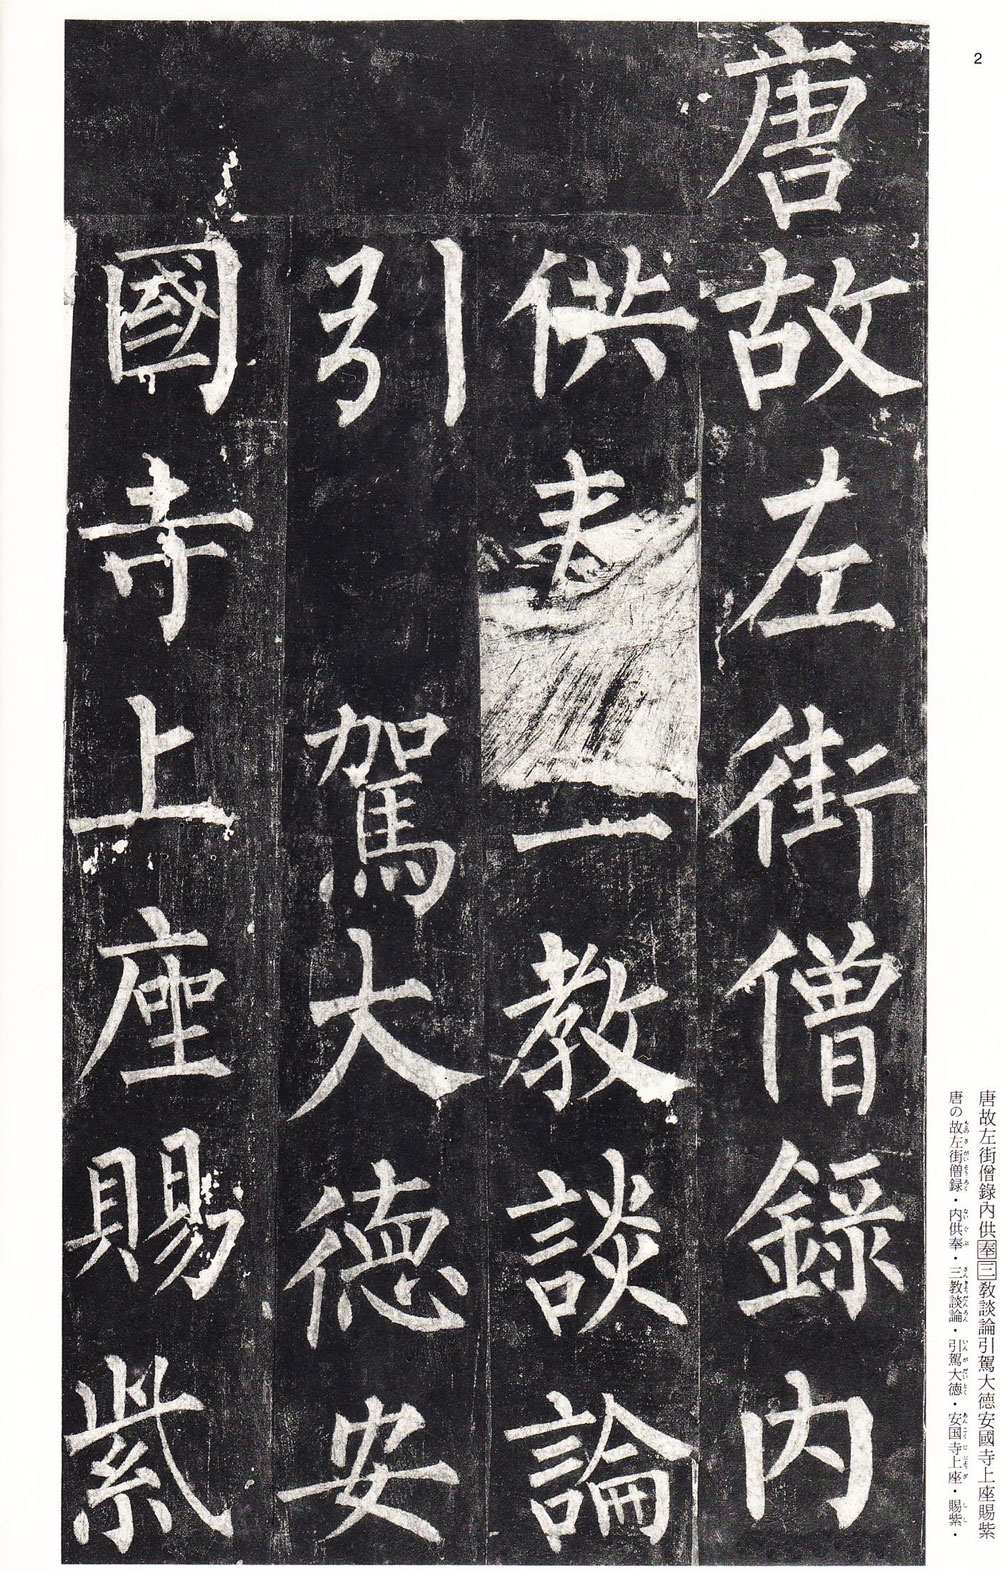 2
唐故左街僧錄内
供奉三教談論
引駕大德安
國寺上座賜紫
唐故左街僧錄內供奉三敎談論引駕大德安國寺上座賜紫
唐の故左街僧録・内供奉・三教談論・引駕大徳・安国寺上座・賜紫・